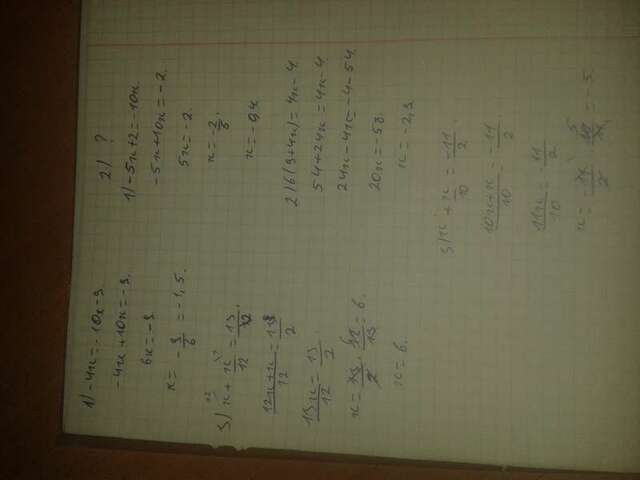 1) -4x = -10x-9.
-4x+10x=-9.
6x=-9
x = -9/6 = -1,5.
3) x + x/12 = 13/2.
12x+x/12 = 13/2
13x/12 = 13/2
x = 13/2 · 12/13 = 6.
x=6.
2) ?
1) -5x+2=-10x.
-5x+10x=-2.
5x=-2.
x=-2/5.
x=-0,4.
2) 6(9+4x)=4x-4.
54+24x=4x-4
24x-4x=-4-54.
20x=-58.
x=-2,9.
3) x + x/10 = -11/2
10x+x/10 = -11/2.
11x/10 = -11/2
x = -11/2 · 10/11 = -5.